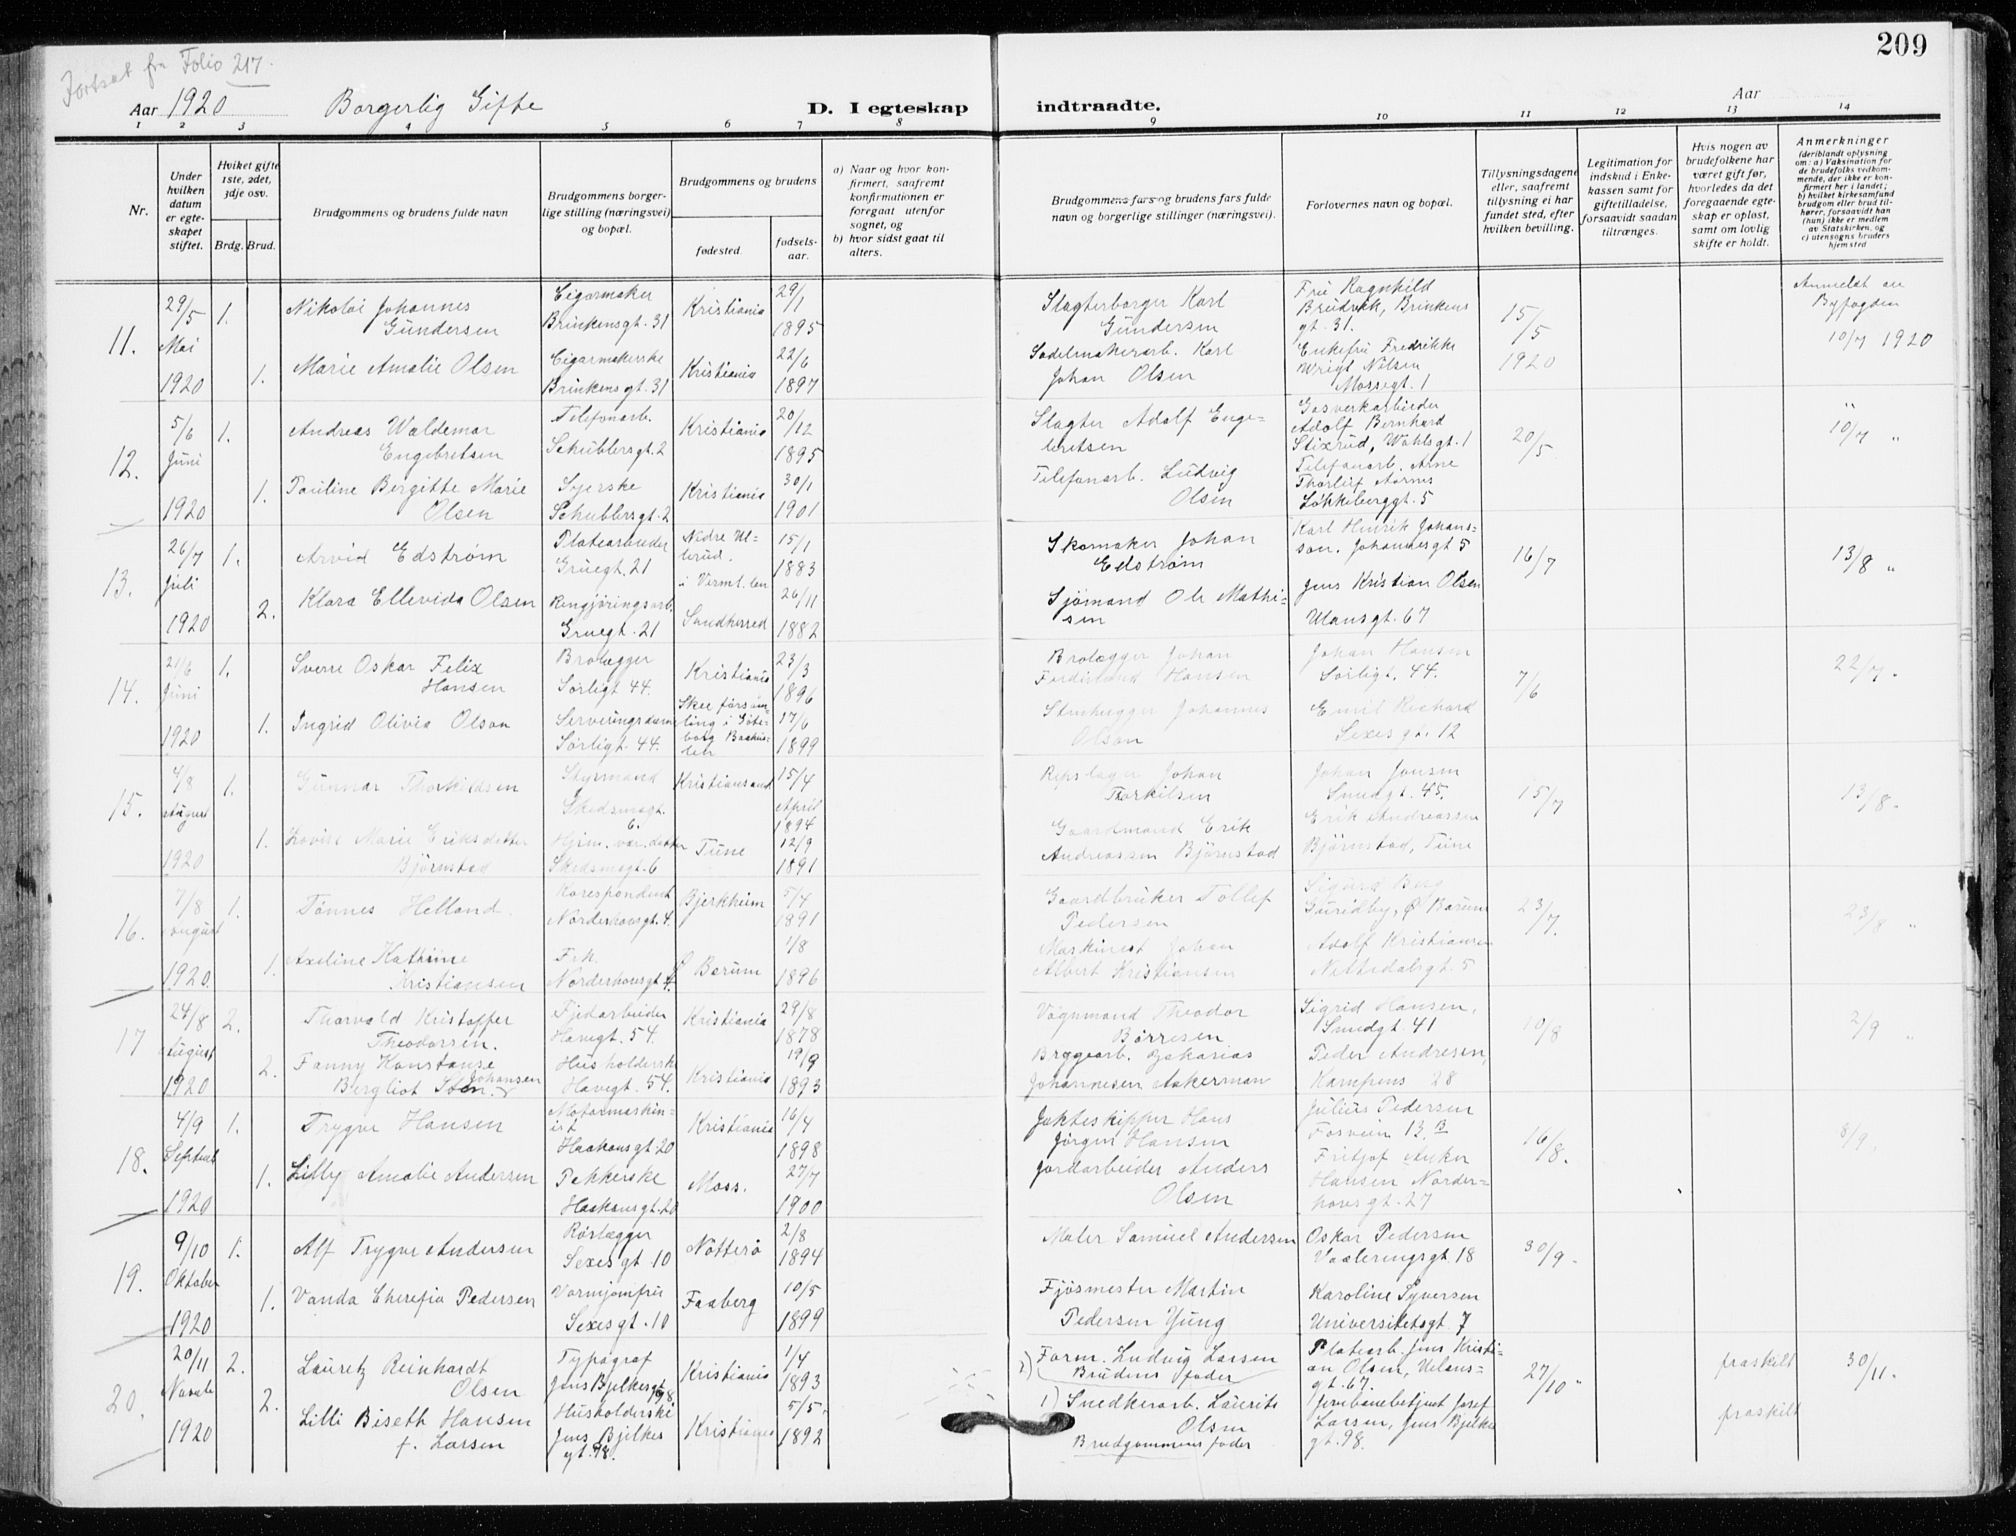 209
Fortsat fra Folio 217.
Aar 1920 Borgerlig Gifte D. I egteskap indtraadte. Aar
1 2 3 4 5 6 7 8 9 10 11 12 13 14
Nr.
Under hvilken datum er egteskapet stiftet.
Hviket gifte 1ste, 2det, 3dje osv.
Brdg. Brud.
Brudgommens og brudens fulde navn
Brudgommens borgerlige stilling (næringsvei) og bopæl.
Brudgommens og brudens
fødested. fødselsaar.
a) Naar og hvor konfirmert, saafremt konfirmationen er foregaat utenfor sognet, og
b) hvor sidst gaat til alters.
Brudgommens fars og brudens fars fulde navn og borgerlige stillinger (næringsvei).
Forlovernes navn og bopæl.
Tillysningsdagene eller, saafremt tillysning ei har fundet sted, efter hvilken bevilling.
Legitimation for indskud i Enkekassen samt for giftetilladelse, forsaavidt saadan tiltrænges.
Hvis nogen av brudefolkene har været gift før, hvorledes da det foregaaende egteskap er opløst, samt om lovlig skifte er holdt.
Anmerkninger
(deriblandt oplysning om: a) Vaksination for de brudefolks vedkommende, der ikke er konfirmert her i landet; b) hvilket kirkesamfund brudgom eller brud tilhører, forsaavidt han (hun) ikke er medlem av Statskirken, og c) utensogns bruders hjemsted
11. 29/5 Mai 1920
1. Nikolai Johannes Gundersen Cigarmaker Brinkensgt. 31 Kristiania 29/1 1895 Slagterborger Karl Gundersen Fru Ragnhild Brudvik, Brinkens gt. 31. 15/5 1920 Anmeldt av Byfogden 10/7 1920
1. Marie Amalie Olsen Cigarmakerske Brinkensgt. 31 Kristiania 22/6 1897 Sadelmakerarb. Karl Johan Olsen Enkefru Fredrikke Wrigt Nilsen Mossegt. 1
12. 5/6 Juni 1920
1. Andreas Waldemar Engebretsen Telefonarb. Schublersgt. 2 Kristiania 20/12 1895 Slagter Adolf Engebretsen Gasverkarbieder Adolf Bernhard Stixrud, Wahlsgt. 1 20/5 " 10/7 "
1. Pauline Bergitte Marie Olsen Syerske Schublersgt. 2 Kristiania 30/1 1901 Telefonarb. Ludvig Olsen Telefonarb. Arne Thorleif Aarnes Løkkeberggt. 5
13. 26/7 Juli 1920
1. Arvid Edstrøm Platearbeider Gruegt. 21 Nedre Ullerud. i Värml. len 15/1 1883 Skomaker Johan Edstrøm Karl Henrik Johansson. Johannesgt 5 16/7 13/8 "
2. Klara Ellevida Olsen Rengjøringsarb. Gruegt. 21 Sandherred 26/11 1882 Sjømand Ole Mathisen Jens Kristian Olsen Ulansgt. 67
14. 21/6 Juni 1920
1. Sverre Oskar Felix Hansen Brolægger Sørligt 44. Kristiania 23/3 1896 Brolægger Johan Ferdinand Hansen Johan Hansen Sørligt. 44. 7/6 22/7.
1. Ingrid Olivia Olson Serveringsdame Sørligt. 44. Skee församling i Göteborg Bohuslen 17/6 1899 Stenhugger Johannes Olson Emil Richard Sexes gt. 12
15. 4/8 August 1920
1. Gunnar Thorkildsen Styrmand Skedsmogt. 6. Kristiansand 15/4 April 1894 Repslager Johan Torkilsen Johan Jensen Smedgt. 45. 15/7 13/8.
1. Lovise Marie Eriksdatter Bjørnstad Hjem. vær. datter Skedsmogt. 6 Tune 12/9 1891 Gaardmand Erik Andreassen Bjørnstad Erik Andreassen Bjørnstad, Tune
16. 7/8 August 1920.
1. Tønnes Helland. Korespondent Norderhovsgt. 4. Bjerkheim 5/4 1891 Gaardbruker Tollef Pedersen Sigurd Berg Guridby, Ø Bærum 23/7. 23/8 "
1. Axeline Kathrine Kristiansen Frk. Norderhovsgt. 4. Berum 1/8 1896 Maskinest Johan Albert Kristiansen Adolf Kristiansen Nittedalsgt. 5
17 24/8 August 1920
2. Thorvald Kristoffer Theodorsen. Fjedarbeider Havegt. 54. Kristiania 29/8 1878 Vognmand Theodor Børresen Sigrid Hansen, Smedgt. 41 10/8 2/9 "
2. Fanny Konstanse Bergliot Johansen Husholderske Havegt. 54. Kristiania 19/9 1893 Bryggearb. Zakarias Johannesen Aakerman Peder Andresen, Kampens 28
18. 4/9 Septemb 1920
1. Trygve Hansen Motormaskinist Haakonsgt. 20 Kristiania 16/4 1898 Jakteskipper Hans Jørgen Hansen Julius Pedersen Fosvein 13 B 16/8. 8/9.
1. Lilly Amalie Andersen Pekkerske Haakonsgt. 20 Moss. 27/7 1900 Jordarbeider Anders Olsen Fritjof Anker Hansen Norderhovsgt. 27
19. 9/10 Oktober 1920
1. Alf Trygve Andersen Rørlægger Sexesgt 10 Nøtterø 2/8 1894 Maler Samuel Andersen Oskar Pedersen Vaaleringsgt 18 30/9.
1. Vanda Cherefia Pedersen Varmjomfru Sexesgt. 10 Faaberg 10/5 1899 Fjøsmester Martin Pedersen Yung Karoline Syversen Universitetsgt 7
20. 20/11 Novbr 1920
2. Lauretz Reinhardt Olsen Typograf Jens Bjelkesgt 98 Kristiania 1/4 1893 2) Form. Ludvig Larsen Brudens fader Platearb. Jens Kristian Olsen, Ulansgt. 67. 27/10 " fraskilt 30/11.
2. Lilli Biseth Hansen f. Larsen Husholderske Jens Bjelkes gt. 98. Kristiania 5/5. 1892 1) Snedkerarb. Laurits Olsen Brudgommens fader Jernbanebetjent Josef Larsen, Jens Bjelkes gt. 98. fraskilt